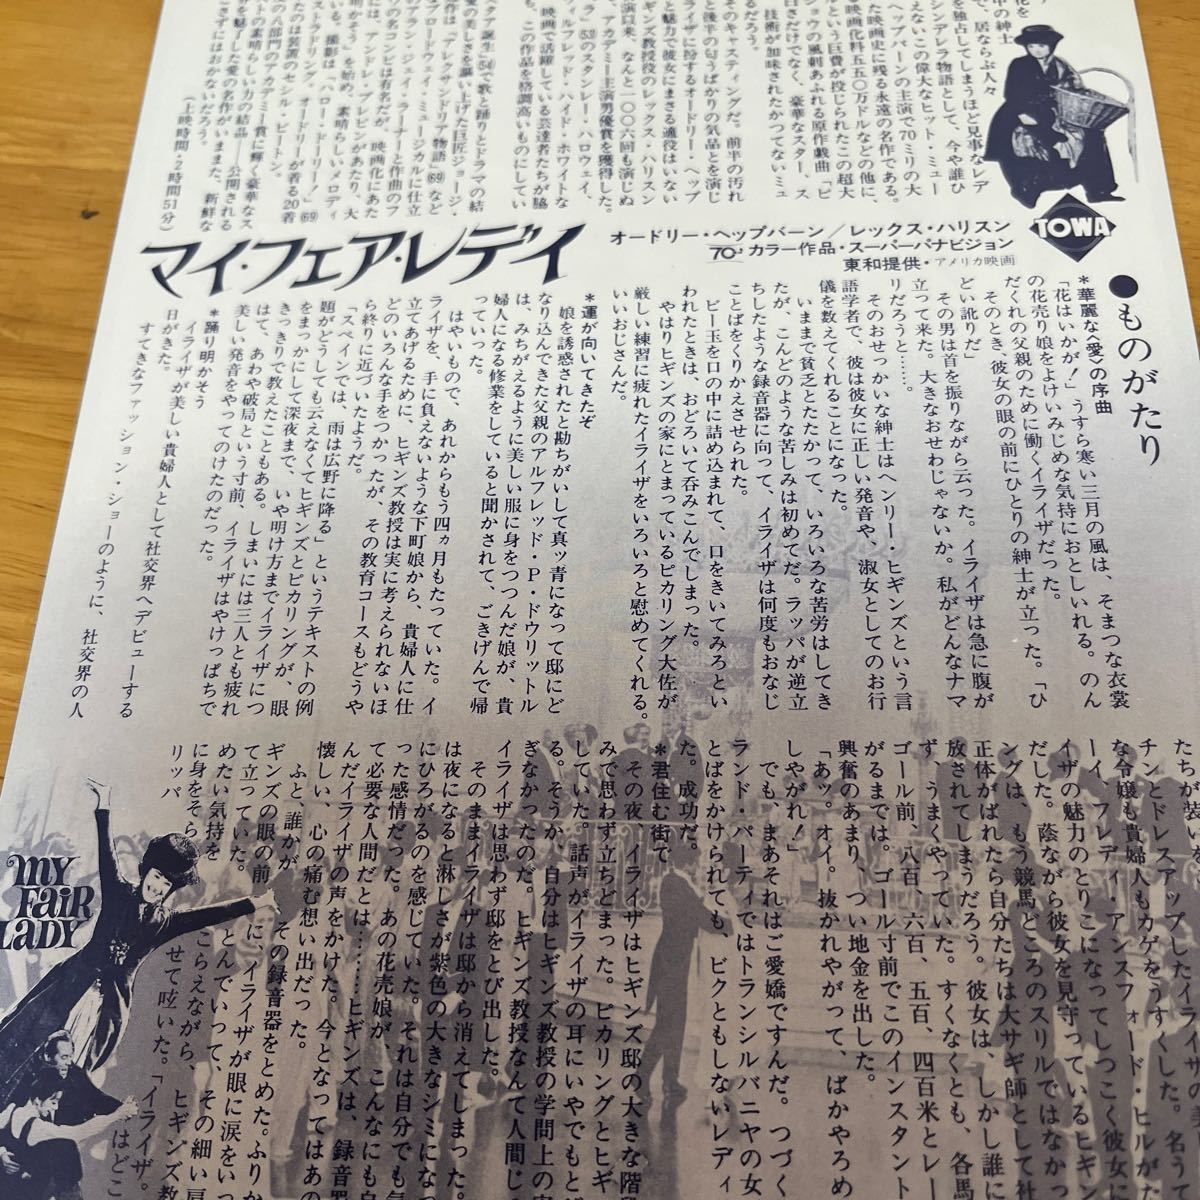 花を
中の紳士
で、居ならぶ人々
を独占してしまうほど見事なレデ
シンデレラ物語として、今や誰ひ
ない、この偉大なヒット・ミュー
ヘップバーンの主演で70ミリの大
た映画史に残る永遠の名作である。
映画化料五五〇万ドルなどの他に、
ルという巨費が投じられたこの超大
ョウの風刺あふれる原作戯曲「ピ
白さだけでなく、豪華なスター、ス
技術が加味されたかつてないミュ
そのキャスティングだ。前半の汚れ
と後半の匂うばかりの気品とを演じ
イザに扮するオードリー・ヘップ
な魅力で彼女にまさる適役はいない
ギンズ教授役のレックス・ハリスン
演以来、なんと一〇〇六回も演じぬ
アカデミー主演男優賞を獲得した。
(53)のスタンレー・ハロウェイ、
ルフレッド・ハイド・ホワイトな
映画で活躍している芸達者たちが脇
この作品を格調高いものにしてい
誕生」(54)で歌と踊りとドラマの結
愛の美しさを謳い上げた巨匠ジョージ・
作は「アレクサンドリア物語」(69)など
ブロードウェイ・ミュージカルに仕立
ン・ジェイ・ラーナーと作曲のフ
の名コンビは有名だが、映画化にあた
は、アンドレ・プレビンがあたり、大
明かそう」を始め、素晴らしいメロディ
撮影は、「ハロー・ドーリー！」(69)
ストラドリング、オードリーが着る20着
たのは装置のセシル・ビートン。
の八部門のアカデミー賞に輝く豪華なス
トの素晴らしい力の結晶――公開される
を魅了した愛の名作がいままた、新鮮な
せずにはおかないだろう。
(上映時間・2時間51分)
TOWA
オードリー・ヘップバーン／レックス・ハリスン
70ミリカラー作品・スーパーパナビジョン
東和提供・アメリカ映画
マイ・フェア・レデイ
●ものがたり
＊華麗な〈愛〉の序曲
「花はいかが！」うすら寒い三月の風は、そまつな衣裳
の花売り娘をよけいみじめな気持におとしいれる。のん
だくれの父親のために働くイライザだった。
そのとき、彼女の眼の前にひとりの紳士が立った。「ひ
どい訛りだ」
その男は首を振りながら云った。イライザは急に腹が
立って来た。大きなおせわじゃないか。私がどんなナマ
リだろうと……。
そのおせっかいな紳士はヘンリー・ヒギンズという言
語学者で、彼は彼女に正しい発音や、淑女としてのお行
儀を教えてくれることになった。
いままで貧乏とたたかって、いろいろな苦労はしてき
たが、こんどのような苦しみは初めてだ。ラッパが逆立
ちしたような録音器に向って、イライザは何度もおなじ
ことばをくりかえさせられた。
ビー玉を口の中に詰め込まれて、口をきいてみろとい
われたときは、おどろいて呑みこんでしまった。
やはりヒギンズの家にとまっているピカリング大佐が
厳しい練習に疲れたイライザをいろいろと慰めてくれる。
いいおじさんだ。
＊運が向いてきたぞ
娘を誘惑されたと勘ちがいして真ッ青になって邸にど
なり込んできた父親のアルフレッド・P・ドウリットル
は、みちがえるように美しい服に身をつつんだ娘が、貴
婦人になる修業をしていると聞かされて、ごきげんで帰
っていった。
はやいもので、あれからもう四ヵ月もたっていた。イ
ライザを、手に負えないような下町娘から、貴婦人に仕
立てあげるために、ヒギンズ教授は実に考えられないほ
どのいろんな手をつかったが、その教育コースもどうや
ら終りに近づいたようだ。
「スペインでは、雨は広野に降る」というテキストの例
題がどうしても云えなくてヒギンズとピカリングが、眼
をまっかにして深夜まで、いや明け方までイライザにつ
きっきりで教えたこともある。しまいには三人とも疲れ
はて、あわや破局という寸前、イライザはやけっぱちで
美しい発音をやってのけたのだった。
＊踊り明かそう
イライザが美しい貴婦人として社交界へデビューする
日がきた。
すてきなファッション・ショーのように、社交界の人
たちが装い
チンとドレスアップしたイライザの
な令嬢も貴婦人もカゲをうすくした。名うて
ーイ、フレディ・アンスフォード・ヒルが
イザの魅力のとりこになってしつこく彼女に
だした。蔭ながら彼女を見守っているヒギン
ングは、もう競馬どころのスリルではなかっ
正体がばれたら自分たちは大サギ師として社
放されてしまうだろう。彼女は、しかし誰に
ず、うまくやっていた。すくなくとも、各馬
ゴール前、八百、六百、五百、四百米とレー
がるまでは。ゴール寸前でこのインスタント
興奮のあまり、つい地金を出した。
「あッ。オイ。抜かれやがって、ばかやろめ
しやがれ！」
でも、まあそれはご愛嬌ですんだ。つづく
ランド・パーティではトランシルバニヤの女
とばをかけられても、ビクともしないレディ
た。成功だ。
＊君住む街で
その夜、イライザはヒギンズ邸の大きな階段
みで思わず立ちどまった。ピカリングとヒギ
していた。話声がイライザの耳にいやでもと
る。そうか、自分はヒギンズ教授の学問上の実
ぎなかったのだ。ヒギンズ教授なんて人間じ
イライザは思わず邸をとび出した。
そのままイライザは邸から消えてしまった。
は夜になると淋しさが紫色の大きなシミにな
にひろがるのを感じていた。それは自分でも気
った感情だった。あの花売娘が、こんなにも自
て必要な人間だとは……ヒギンズは、録音器
んだイライザの声をかけた。今となってはあの
懐しい、心の痛む想い出だった。
ふと、誰かが　その録音器をとめた。ふりか
ギンズの眼の前　に、イライザが眼に涙をいっ
て立っていた。　とんでいって、その細い肩
めたい気持を　こらえながら、ヒギンズ教
に身をそら　せて呟いた。「イライザ。
リッパ　はどこ
MY FAIR LADY